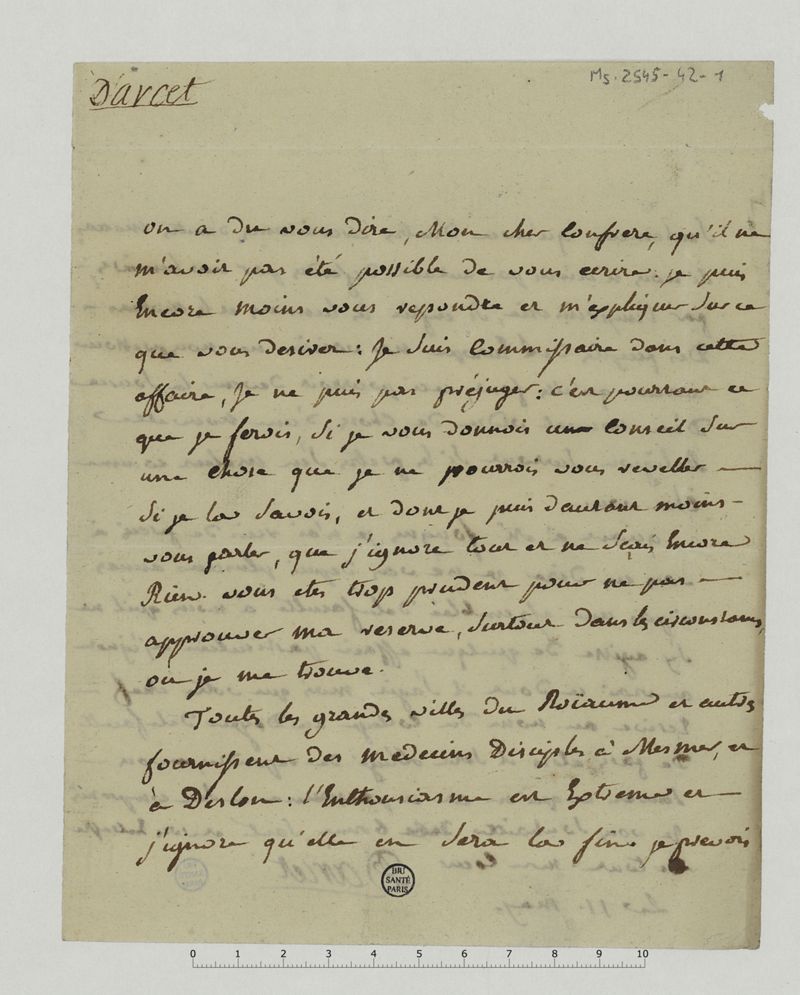 D'arcet
Ms. 2545-42-1
on a du vous dire, Mon cher Confrere, qu'il ne
m'avoit pas été possible de vous ecrire. je puis
Encore moins vous repondre et m'expliquer sur ce
que vous desirer: Je suis Commissaire dans cette
affaire, Je ne puis pas préjuger: c'est pourtant ce
que je ferois, Si je vous donnois un Conseil sur
une chose que je ne pourrois vous reveller —
Si je la savois, et dont je puis d'autant moins —
vous parler, que j'ignore tout et ne sçais Encore
Rien. vous etes trop prudent pour ne pas —
approuver ma reserve, surtout dans les circonstances,
où je me trouve.
Toutes les grandes villes du Roïaume et autres
fournissent des medecins Disciples à Mesmer, et
à Deslon: l'Enthousiasme est Extreme et —
j'ignore qu'elle en sera la fin. je prevois
BIU
SANTÉ
PARIS
0 1 2 3 4 5 6 7 8 9 10